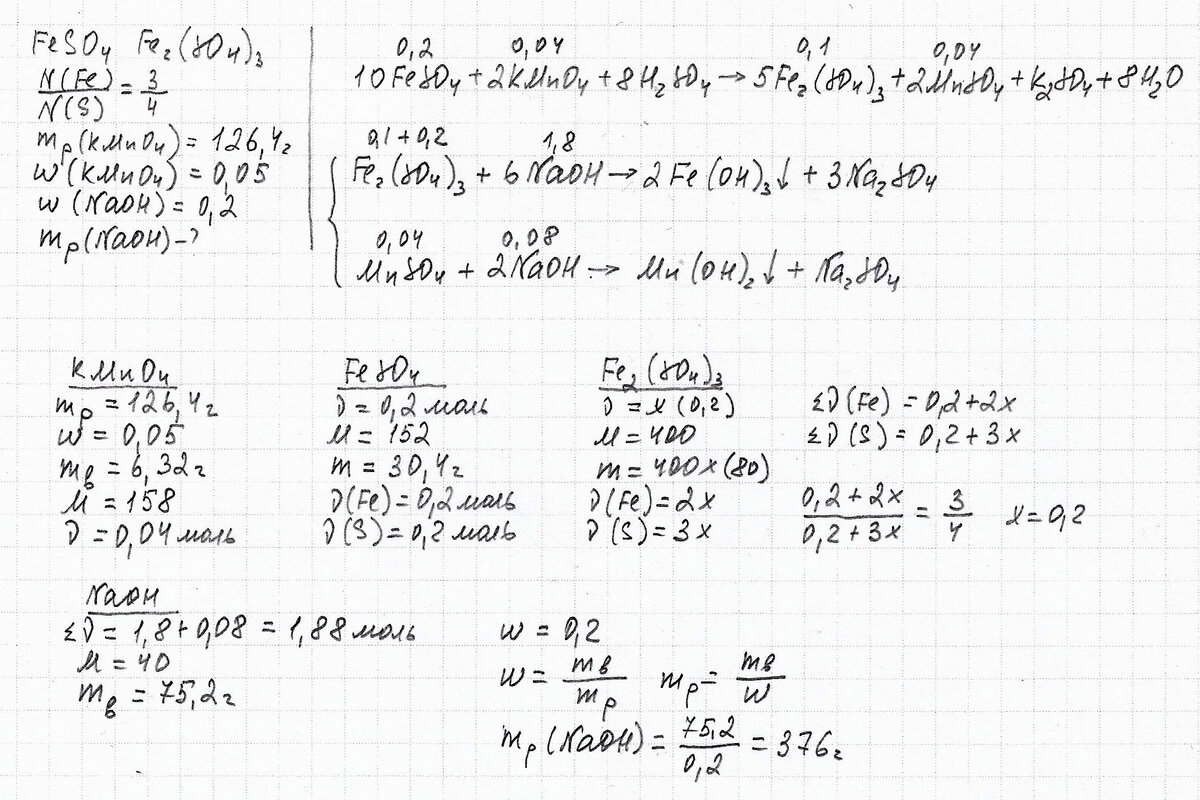 FeSO4 Fe2(SO4)3
N(Fe)/N(S) = 3/4
mр(KMnO4) = 126,4г
w(KMnO4) = 0,05
w(NaOH) = 0,2
mр(NaOH) - ?
0,2 0,04 0,1 0,04
10FeSO4 + 2KMnO4 + 8H2SO4 → 5Fe2(SO4)3 + 2MnSO4 + K2SO4 + 8H2O
0,1 + 0,2 1,8
Fe2(SO4)3 + 6NaOH → 2Fe(OH)3↓ + 3Na2SO4
0,04 0,08
MnSO4 + 2NaOH → Mn(OH)2↓ + Na2SO4
KMnO4
mр = 126,4г
w = 0,05
mв = 6,32г
M = 158
ν = 0,04 моль
FeSO4
ν = 0,2 моль
M = 152
m = 30,4г
ν(Fe) = 0,2 моль
ν(S) = 0,2 моль
Fe2(SO4)3
ν = x (0,2)
M = 400
m = 400x (80)
ν(Fe) = 2x
ν(S) = 3x
Σν(Fe) = 0,2 + 2x
Σν(S) = 0,2 + 3x
(0,2 + 2x)/(0,2 + 3x) = 3/4 x = 0,2
NaOH
Σν = 1,8 + 0,08 = 1,88 моль
M = 40
mв = 75,2г
w = 0,2
w = mв/mр mр = mв/w
mр(NaOH) = 75,2/0,2 = 376г